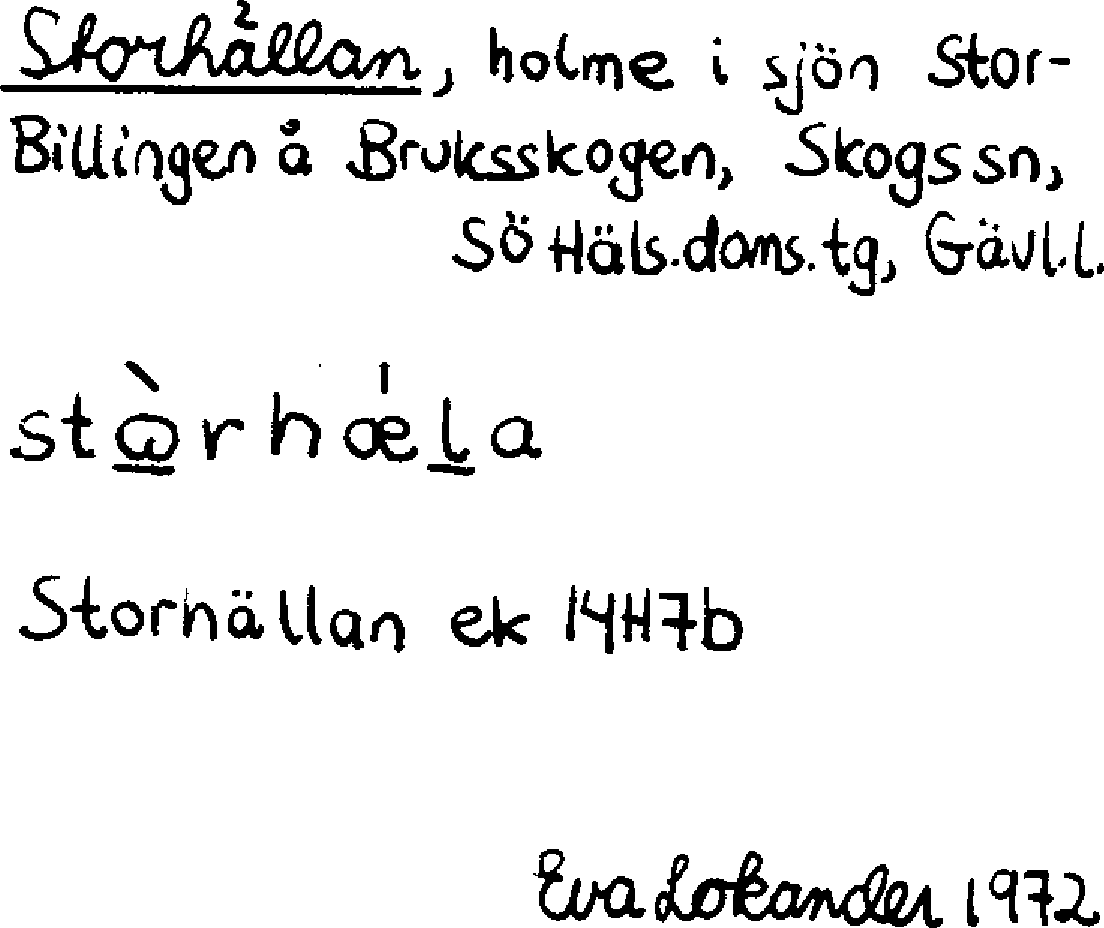 Storhällan, holme i sjön Stor-
Billingen å Bruksskogen, Skogs sn,
SÖ Häls.doms.tg, Gävl.l.
stɷ̀rhǽla
Storhällan ek 14H7b
Eva Lokander 1972